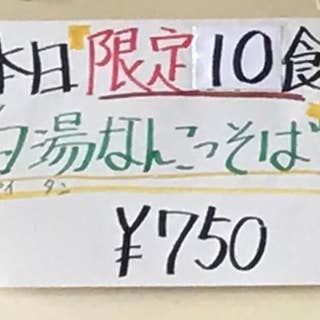 本日限定10食
白湯なんこつそば
イ タン
¥750